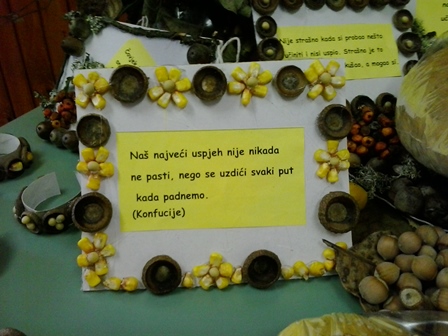 Naš najveći uspjeh nije nikada
ne pasti, nego se uzdići svaki put
kada padnemo.
(Konfucije)
Nije strašno kada si probao nešto
i nisi uspio. Strašno je to
a mogao si.